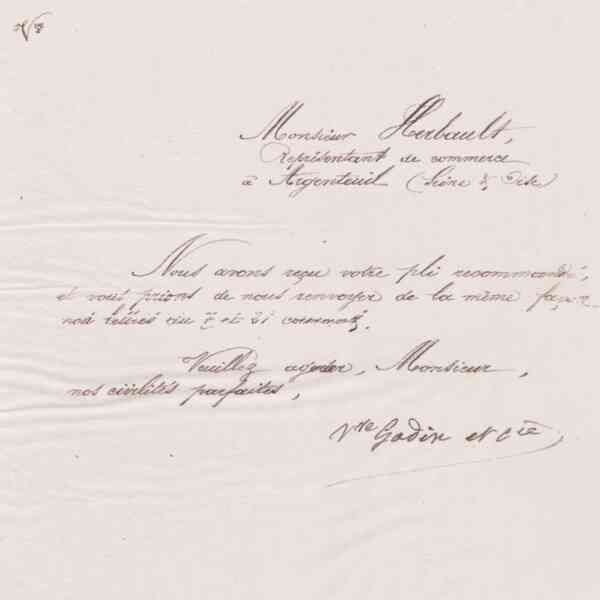 Monsieur Herbault,
Représentant de commerce
à Argenteuil (Seine & Oise)
Nous avons reçu votre pli recommandé,
et vous prions de nous renvoyer de la même façon
nos lettres du et 21 courant.
Veuillez agréer, Monsieur,
nos civilités parfaites,
Vve Godin et Cie